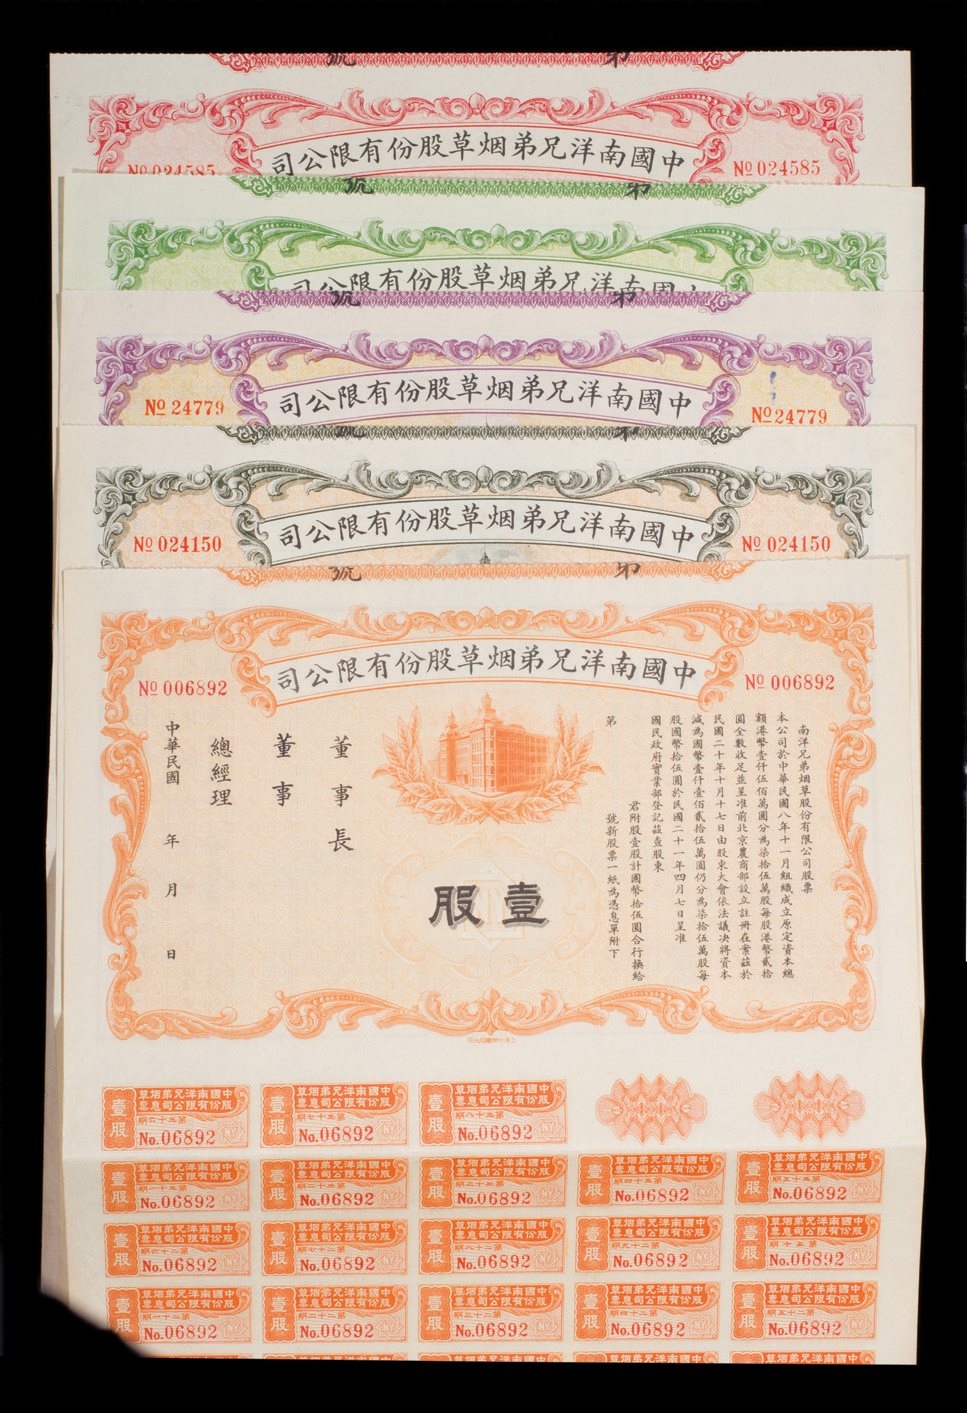 第 號
中國南洋兄弟烟草股份有限公司
№ 024585
№ 024585
第 號
中國南洋兄弟烟草股份有限公司
第 號
中國南洋兄弟烟草股份有限公司
№ 24779
№ 24779
第 號
中國南洋兄弟烟草股份有限公司
№ 024150
№ 024150
第 號
中國南洋兄弟烟草股份有限公司
№ 006892
№ 006892
南洋兄弟烟草股份有限公司股票
本公司於中華民國八年十一月組織成立原定資本總
額港幣壹仟伍佰萬圓分為柒拾伍萬股每股港幣貳拾
圓全數收足並呈准前北京農商部設立註冊在案茲於
民國二十年十月十七日由股東大會依法議决將資本
減為國幣壹仟壹佰貳拾伍萬圓仍分為柒拾伍萬股每
股國幣拾伍圓於民國二十一年四月七日呈准
國民政府實業部登記茲查股東
君附股壹股計國幣拾伍圓合行換給
第 號新股票一紙為憑息單附下
壹股
董事長
董事
總經理
中華民國 年 月 日
壹股
中國南洋兄弟烟草
股份有限公司息票
第三十六期
No.06892
壹股
中國南洋兄弟烟草
股份有限公司息票
第三十七期
No.06892
壹股
中國南洋兄弟烟草
股份有限公司息票
第三十八期
No.06892
壹股
中國南洋兄弟烟草
股份有限公司息票
第三十一期
No.06892
壹股
中國南洋兄弟烟草
股份有限公司息票
第三十二期
No.06892
壹股
中國南洋兄弟烟草
股份有限公司息票
第三十三期
No.06892
壹股
中國南洋兄弟烟草
股份有限公司息票
第三十四期
No.06892
壹股
中國南洋兄弟烟草
股份有限公司息票
第三十五期
No.06892
壹股
中國南洋兄弟烟草
股份有限公司息票
第二十六期
No.06892
壹股
中國南洋兄弟烟草
股份有限公司息票
第二十七期
No.06892
壹股
中國南洋兄弟烟草
股份有限公司息票
第二十八期
No.06892
壹股
中國南洋兄弟烟草
股份有限公司息票
第二十九期
No.06892
壹股
中國南洋兄弟烟草
股份有限公司息票
第三十期
No.06892
壹股
中國南洋兄弟烟草
股份有限公司息票
第二十一期
No.06892
壹股
中國南洋兄弟烟草
股份有限公司息票
第二十二期
No.06892
壹股
中國南洋兄弟烟草
股份有限公司息票
第二十三期
No.06892
壹股
中國南洋兄弟烟草
股份有限公司息票
第二十四期
No.06892
壹股
中國南洋兄弟烟草
股份有限公司息票
第二十五期
No.06892
中國南洋兄弟烟草